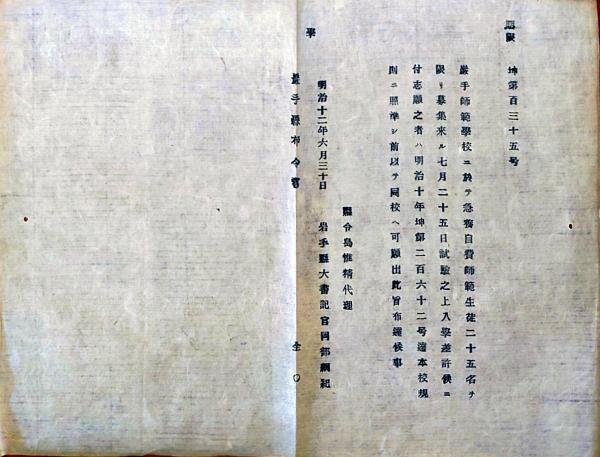 坤第百三十五号
巌手師範學校ニ於テ急務自費師範生徒二十五名ヲ
限リ募集來ル七月二十五日試驗之上入學差許候ニ
付志願之者ハ明治十年坤第二百六十二号達本校規
則ニ照準シ前以テ同校ヘ可願出此旨布達候事
縣令島惟精代理
明治十二年六月三十日 岩手縣大書記官岡部綱紀
學
岩手縣布令書 全〇